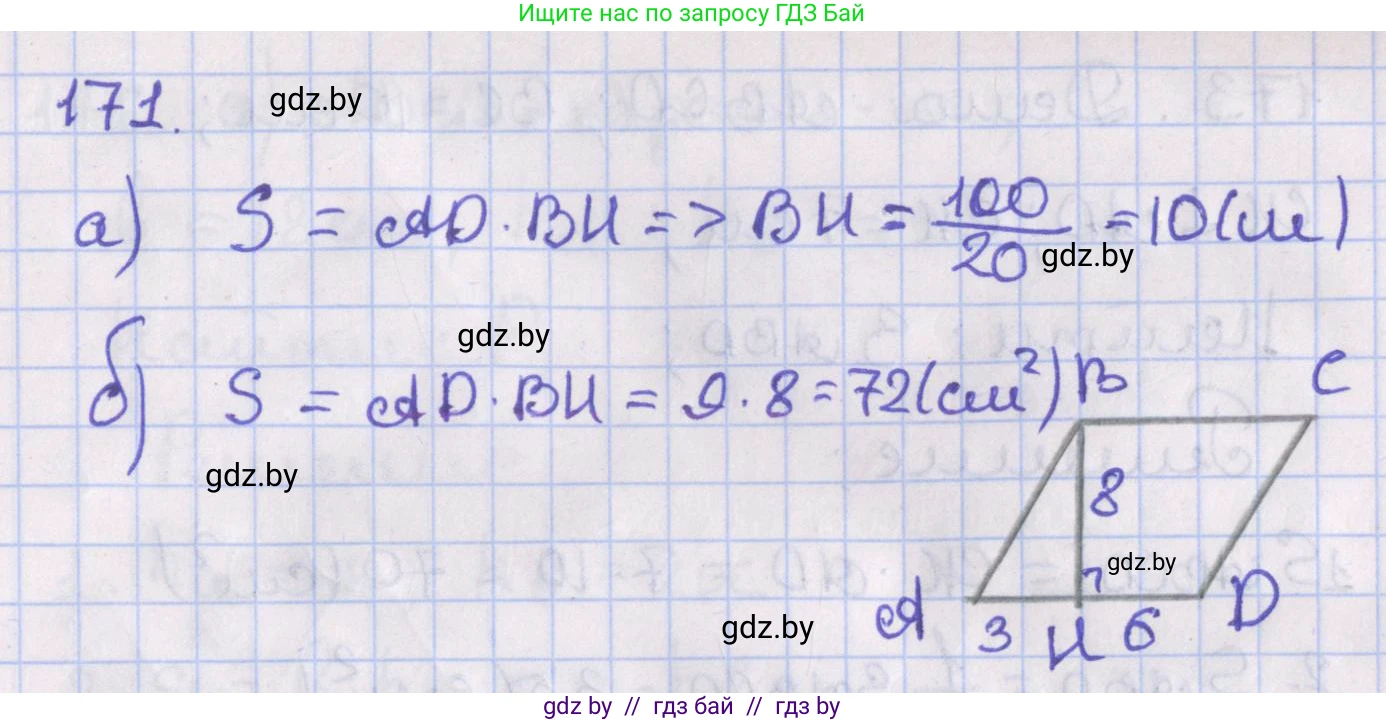 Ищите нас по запросу ГДЗ Бай
171. gdz.by
а) S = AD · BH => BH = 100/20 = 10 (см)
gdz.by
gdz.by
б) S = AD · BH = 9 · 8 = 72 (см²) B C
gdz.by
8
gdz.by
A 3 H 6 D
gdz.by
gdz by // гдз бай // гдз by